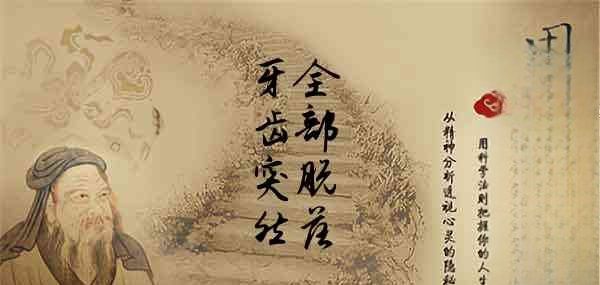 牙齿突然
全部脱落
从精神分析透视心灵的隐秘
用科学法则把握你的人生